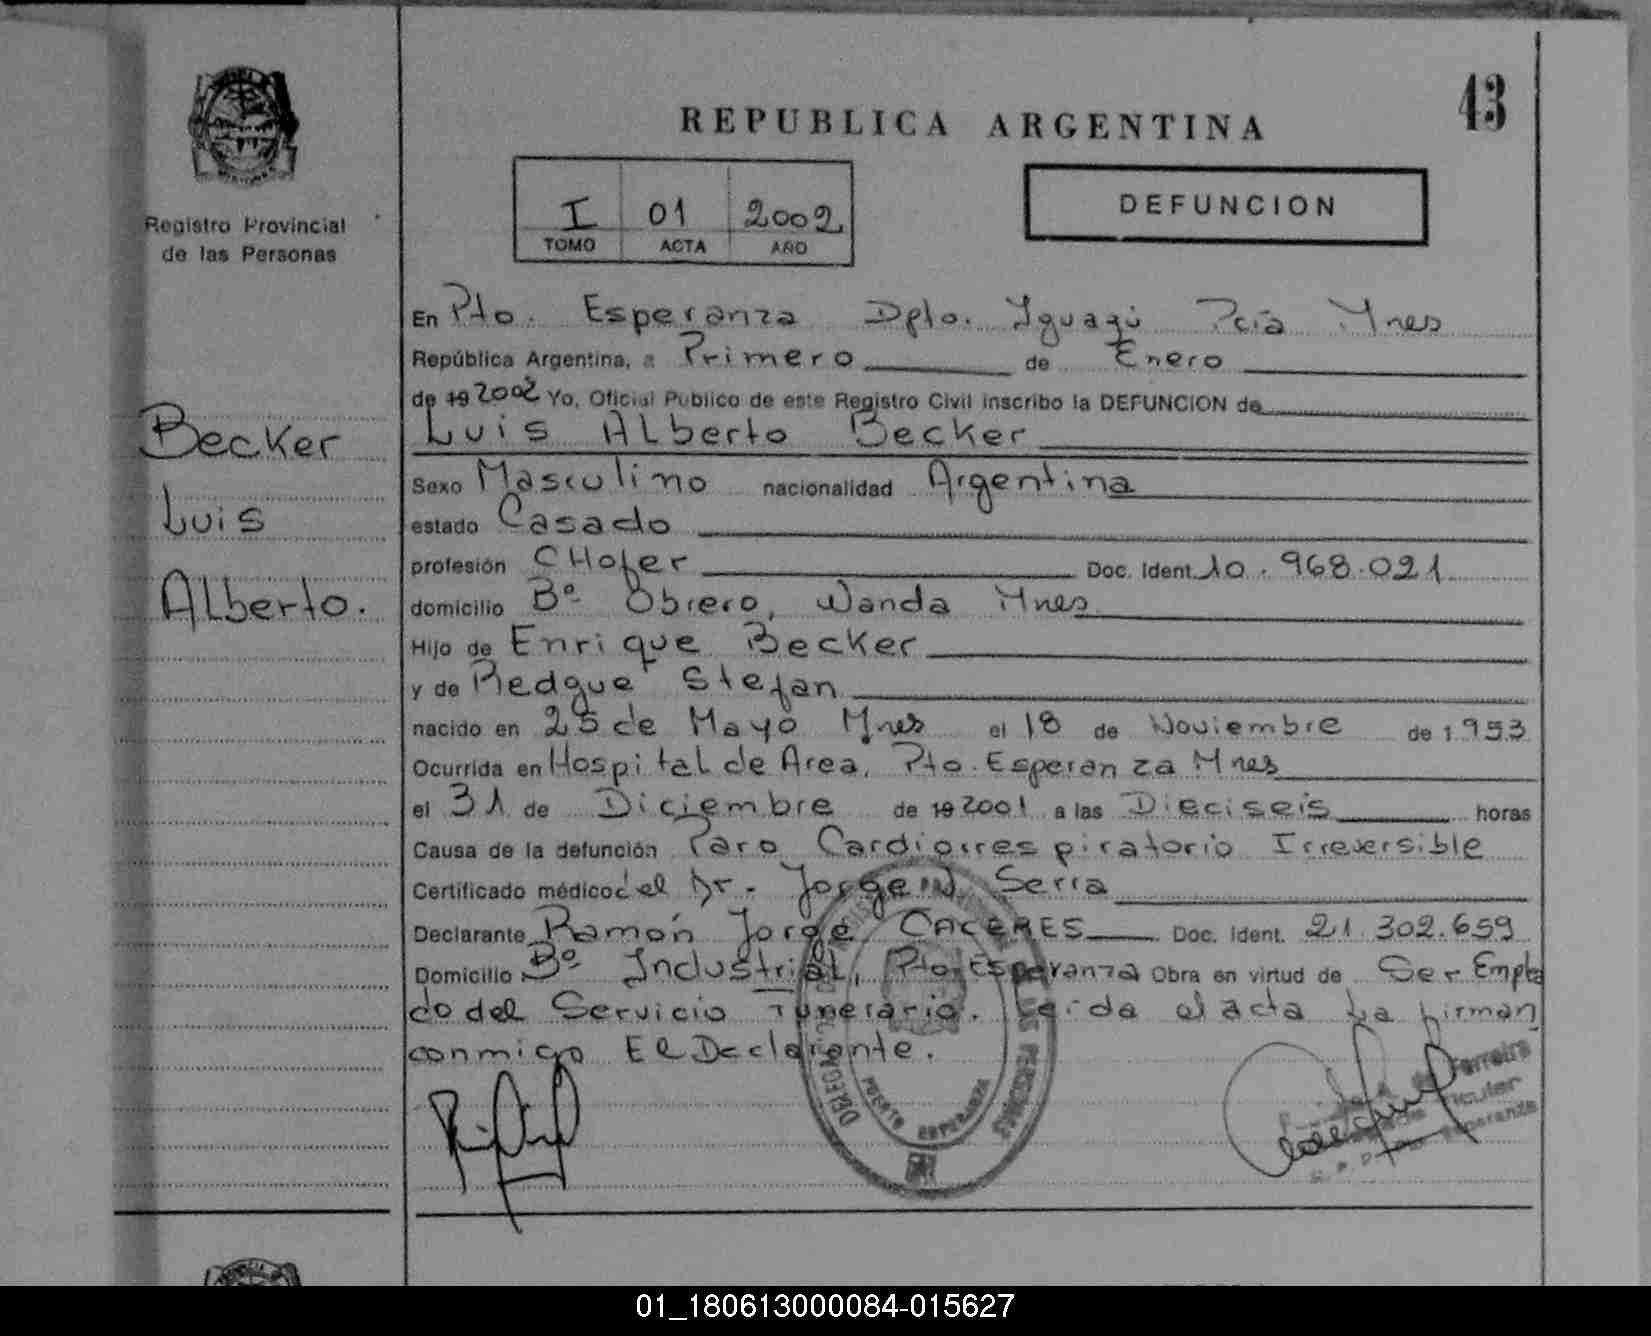 43
REPUBLICA ARGENTINA
Registro Provincial
de las Personas
I 01 2002
TOMO ACTA AÑO
DEFUNCION
Becker
Luis
Alberto.
En Pto. Esperanza Dpto. Iguazú Pcia Mnes
República Argentina, a Primero de Enero
de 19 2002 Yo, Oficial Publico de este Registro Civil inscribo la DEFUNCION de
Luis Alberto Becker
Sexo Masculino nacionalidad Argentina
estado Casado
profesión CHofer Doc. Ident. 10.968.021
domicilio Bº Obrero, Wanda Mnes
Hijo de Enrique Becker
y de Stefan
nacido en 25 de Mayo Mnes el 18 de Noviembre de 1953
Ocurrida en Hospital de Area, Pto. Esperanza Mnes
el 31 de Diciembre de 19 2001 a las Dieciseis horas
Causa de la defunción Paro Cardiorrespiratorio Irreversible
Certificado médico del Dr. Jorge Serra
Declarante Ramón Jorge CACERES Doc. Ident. 21.302.659
Domicilio Bº Industrial, Pto. Esperanza Obra en virtud de Ser Emplea
do del Servicio Funerario. Leida el acta La firman
conmigo El Declarante.
PUERTO ESPERANZA
de Ferreira
01_180613000084-015627